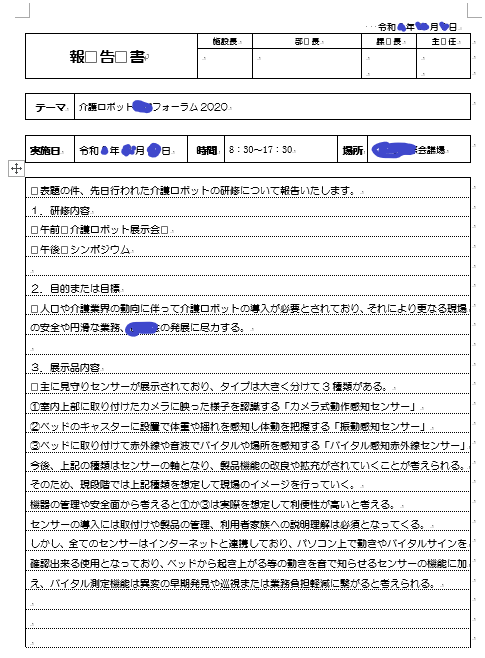 令和 年 月 日
報□告□書
施設長 部□長 課□長 主□任
テーマ 介護ロボット フォーラム2020
実施日 令和 年 月 日 時間 8：30～17：30 場所 会議場
□表題の件、先日行われた介護ロボットの研修について報告いたします。
１．研修内容
□午前□介護ロボット展示会□
□午後□シンポジウム
２．目的または目標
□人口や介護業界の動向に伴って介護ロボットの導入が必要とされており、それにより更なる現場
の安全や円滑な業務、 の発展に尽力する。
３．展示品内容
□主に見守りセンサーが展示されており、タイプは大きく分けて３種類がある。
①室内上部に取り付けたカメラに映った様子を認識する「カメラ式動作感知センサー」
②ベッドのキャスターに設置で体重や揺れを感知し体動を把握する「振動感知センサー」
③ベッドに取り付けて赤外線や音波でバイタルや場所を感知する「バイタル感知赤外線センサー」
今後、上記の種類はセンサーの軸となり、製品機能の改良や拡充がされていくことが考えられる。
そのため、現段階では上記種類を想定して現場のイメージを行っていく。
機器の管理や安全面から考えると①か③は実際を想定して利便性が高いと考える。
センサーの導入には取付けや製品の管理、利用者家族への説明理解は必須となってくる。
しかし、全てのセンサーはインターネットと連携しており、パソコン上で動きやバイタルサインを
確認出来る使用となっており、ベッドから起き上がる等の動きを音で知らせるセンサーの機能に加
え、バイタル測定機能は異変の早期発見や巡視または業務負担軽減に繋がると考えられる。